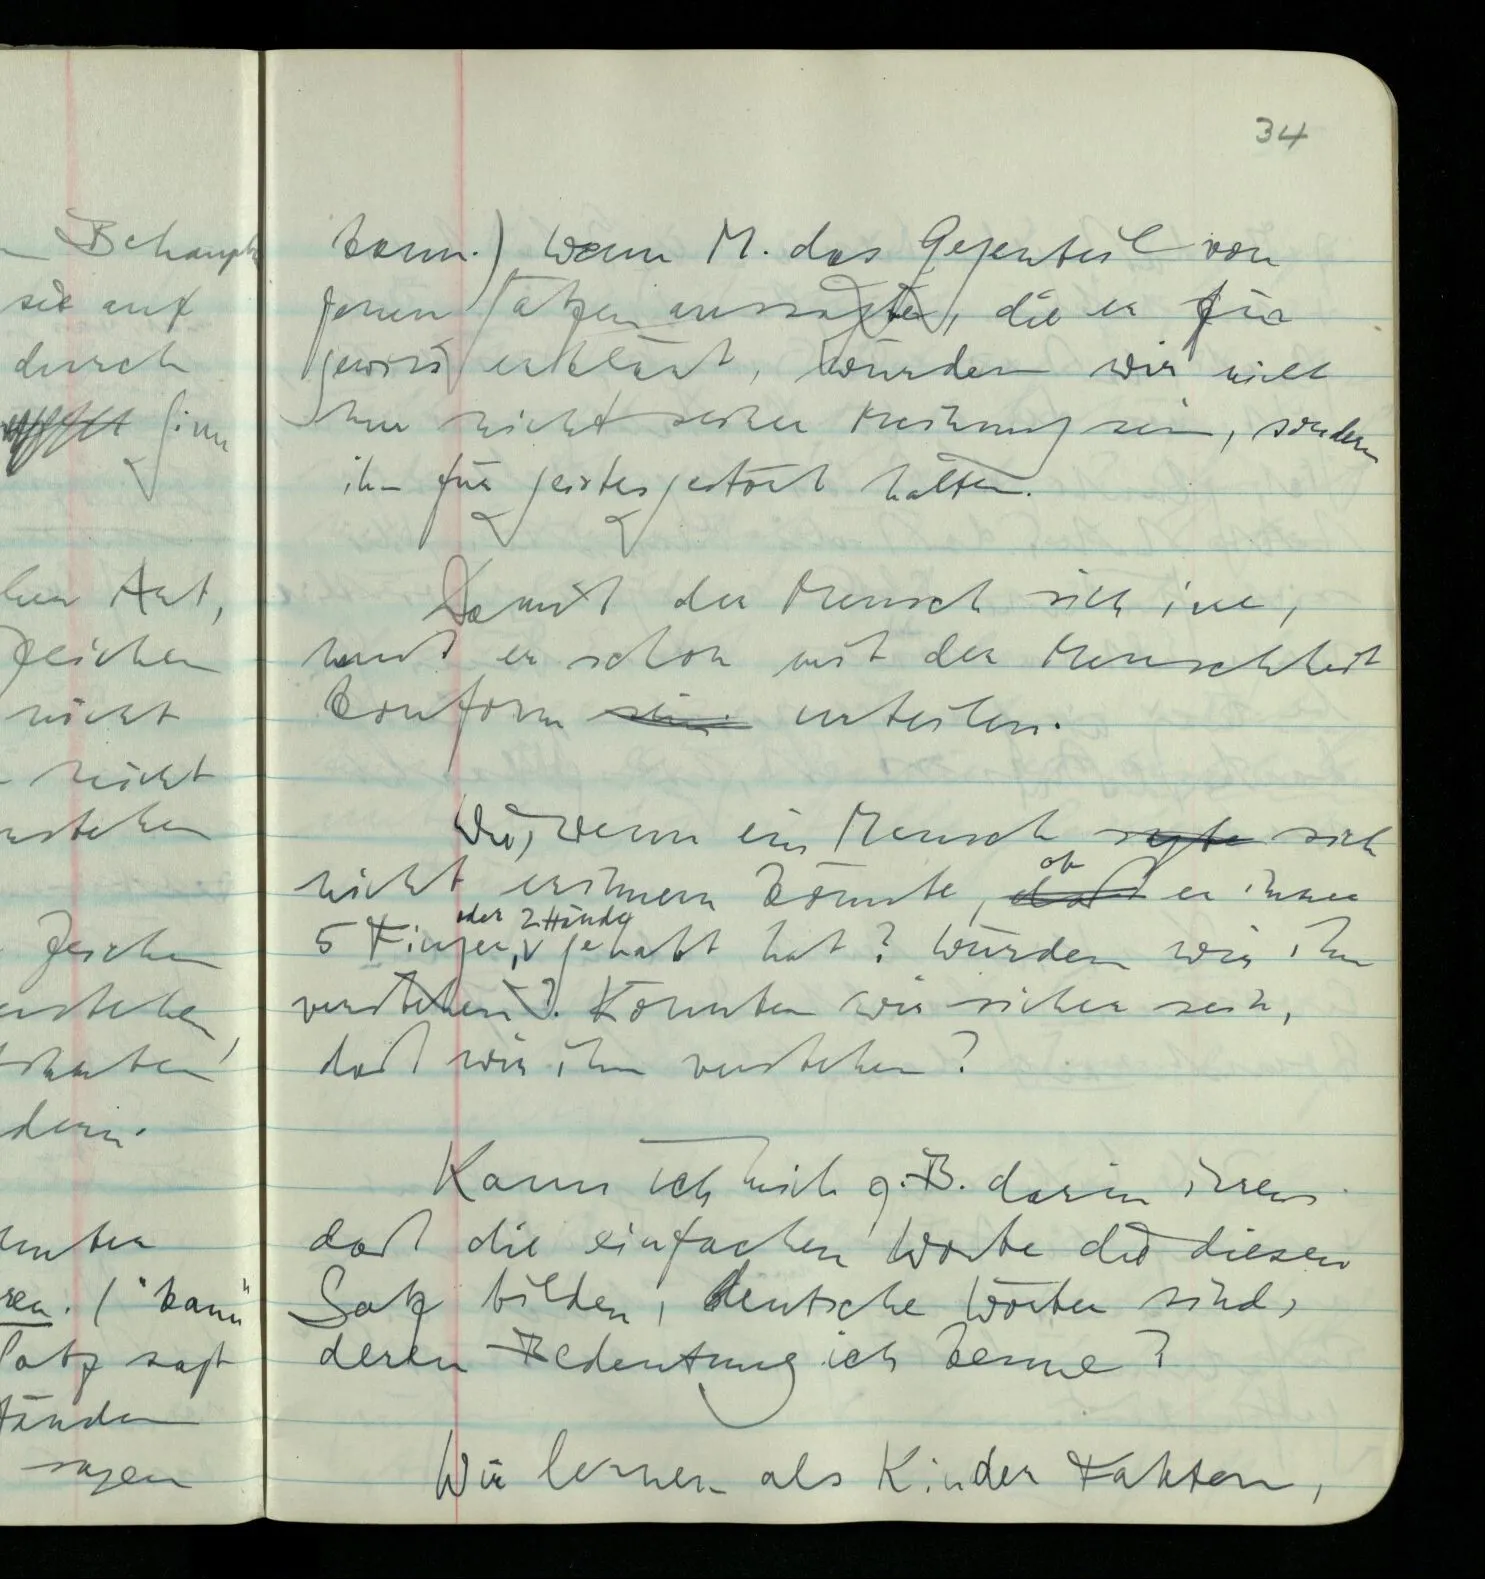 Behaupt
sie auf
durch
Sinn
Art,
Zeichen
nicht
nicht
Zeichen
"kann"
Satz sagt
sagen
34
kann.) Wenn M. das Gegenteil von
jenen Sätzen aussagte, die er für
gewiss erklärt, würden wir nicht
nur nicht seiner Meinung sein, sondern
ihn für geistesgestört halten.
Damit der Mensch sich irre,
muß er schon mit der Menschheit
konform sein urteilen.
Wie, wenn ein Mensch sagte sich
nicht erinnern könnte, daß ob er immer
5 Finger, oder 2 Hände gehabt hat? Würden wir ihn
verstehen? Könnten wir sicher sein,
daß wir ihn verstehen?
Kann ich mich z.B. darin irren
daß die einfachen Worte die diesen
Satz bilden, deutsche Wörter sind,
deren Bedeutung ich kenne?
Wir lernen als Kinder Fakten,